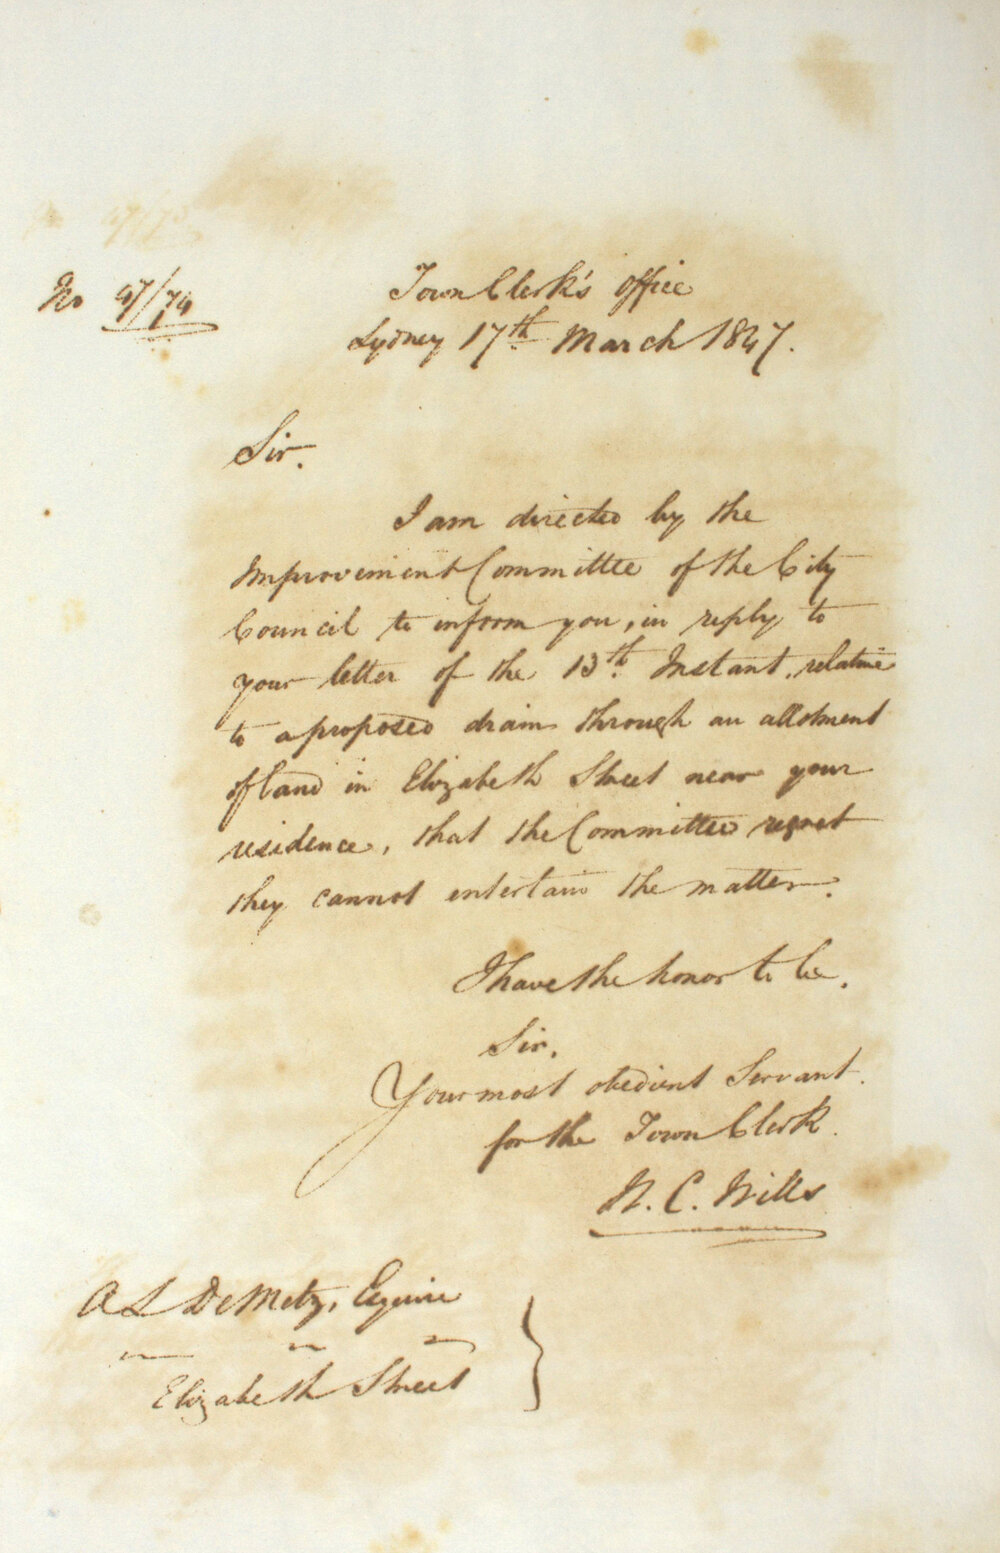 No 47/74
Town Clerk's Office
Sydney 17th March 1847.
Sir.
I am directed by the
Improvement Committee of the City
Council to inform you, in reply to
your letter of the 13th Instant, relative
to a proposed drain through an allotment
of land in Elizabeth Street near your
residence, that the Committee regret
they cannot entertain the matter.
I have the honor to be,
Sir,
Your most obedient Servant.
for the Town Clerk.
W. C. Wills
A L De Metz, Esquire
Elizabeth Street